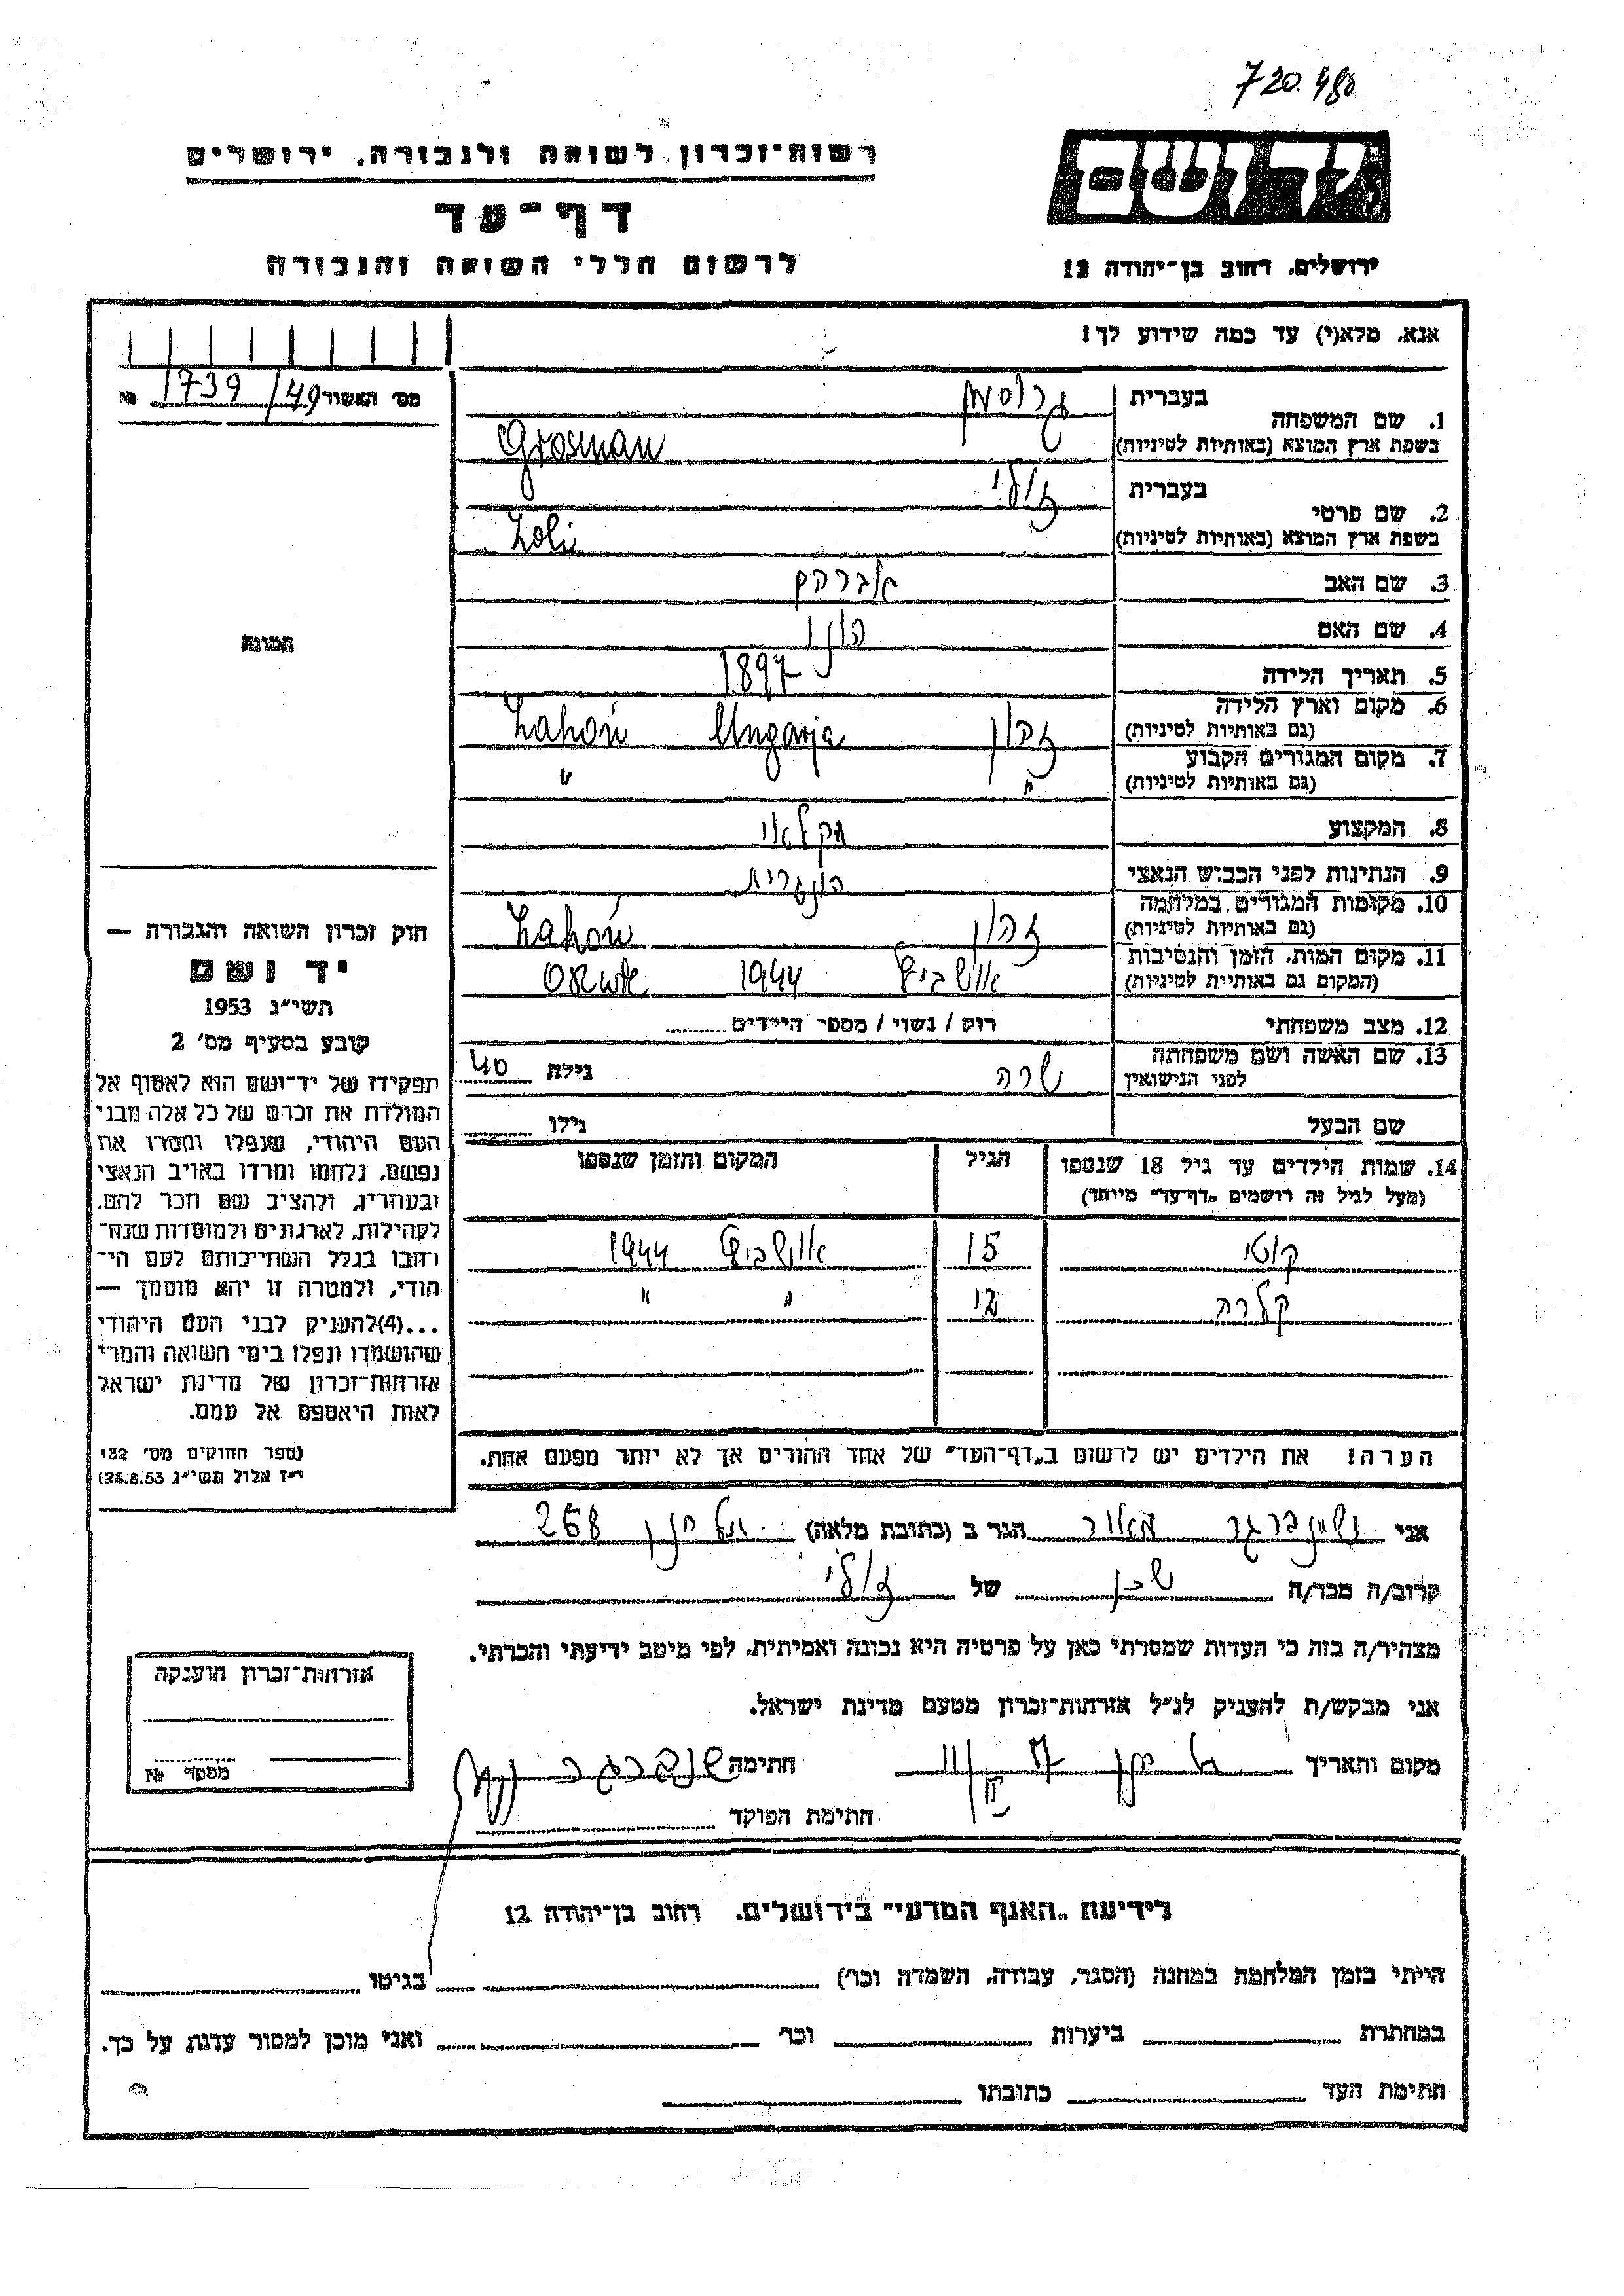 720.480
ידושם
רשות־זכרון לשואה ולגבורה, ירושלים
דף־עד
לרשום חללי השואה והגבורה
ירושלים, רחוב בן־יהודה 12
אנא, מלא(י) עד כמה שידוע לך!
מס׳ האשור 1739/49 №
1. שם המשפחה בעברית גרוסמן
בשפת ארץ המוצא (באותיות לטיניות) Grosman
2. שם פרטי בעברית זולי
בשפת ארץ המוצא (באותיות לטיניות) Zoli
3. שם האב אברהם
4. שם האם
5. תאריך הלידה 1897
6. מקום וארץ הלידה (גם באותיות לטיניות) זהון Ungarja Zahoń
7. מקום המגורים הקבוע (גם באותיות לטיניות) " "
8. המקצוע חקלאי
9. הנתינות לפני הכבוש הנאצי הונגרית
10. מקומות המגורים במלחמה (גם באותיות לטיניות) זהון Zahoń
11. מקום המות, הזמן והנסיבות (המקום גם באותיות לטיניות) אושביץ 1944
12. מצב משפחתי רוק / נשוי / מספר הילדים
13. שם האשה ושם משפחתה לפני הנישואין שרה גילה 40
שם הבעל גילו
14. שמות הילדים עד גיל 18 שנספו הגיל המקום והזמן שנספו
(מעל לגיל זה רושמים „דף־עד״ מיוחד)
קוטי 15 אושביץ 1944
קלרה 12 " "
הערה! את הילדים יש לרשום ב„דף־העד״ של אחד ההורים אך לא יותר מפעם אחת.
תמונה
חוק זכרון השואה והגבורה —
יד ושם
תשי״ג 1953
קובע בסעיף מס׳ 2
תפקידו של יד־ושם הוא לאסוף אל
המולדת את זכרם של כל אלה מבני
העם היהודי, שנפלו ומסרו את
נפשם, נלחמו ומרדו באויב הנאצי
ובעוזריו, ולהציב שם וזכר להם,
לקהילות, לארגונים ולמוסדות שנח־
רבו בגלל השתייכותם לעם הי־
הודי, ולמטרה זו יהא מוסמך —
...(4)להעניק לבני העם היהודי
שהושמדו ונפלו בימי השואה והמרי
אזרחות־זכרון של מדינת ישראל
לאות היאספם אל עמם.
(ספר החוקים מס׳ 132
י״ז אלול תשי״ג 28.8.53)
אני הגר ב (כתובת מלאה) 268
קרוב/ה מכר/ה שכן של זולי
מצהיר/ה בזה כי העדות שמסרתי כאן על פרטיה היא נכונה ואמיתית, לפי מיטב ידיעתי והכרתי.
אני מבקש/ת להעניק לנ״ל אזרחות־זכרון מטעם מדינת ישראל.
מקום ותאריך חתימה
חתימת הפוקד
אזרחות־זכרון הוענקה
מספר №
לידיעת „האגף המדעי״ בירושלים. רחוב בן־יהודה 12
הייתי בזמן המלחמה במחנה (הסגר, עבודה, השמדה וכו׳) בגיטו
במחתרת ביערות וכו׳ ואני מוכן למסור עדות על כך.
חתימת העד כתובתו